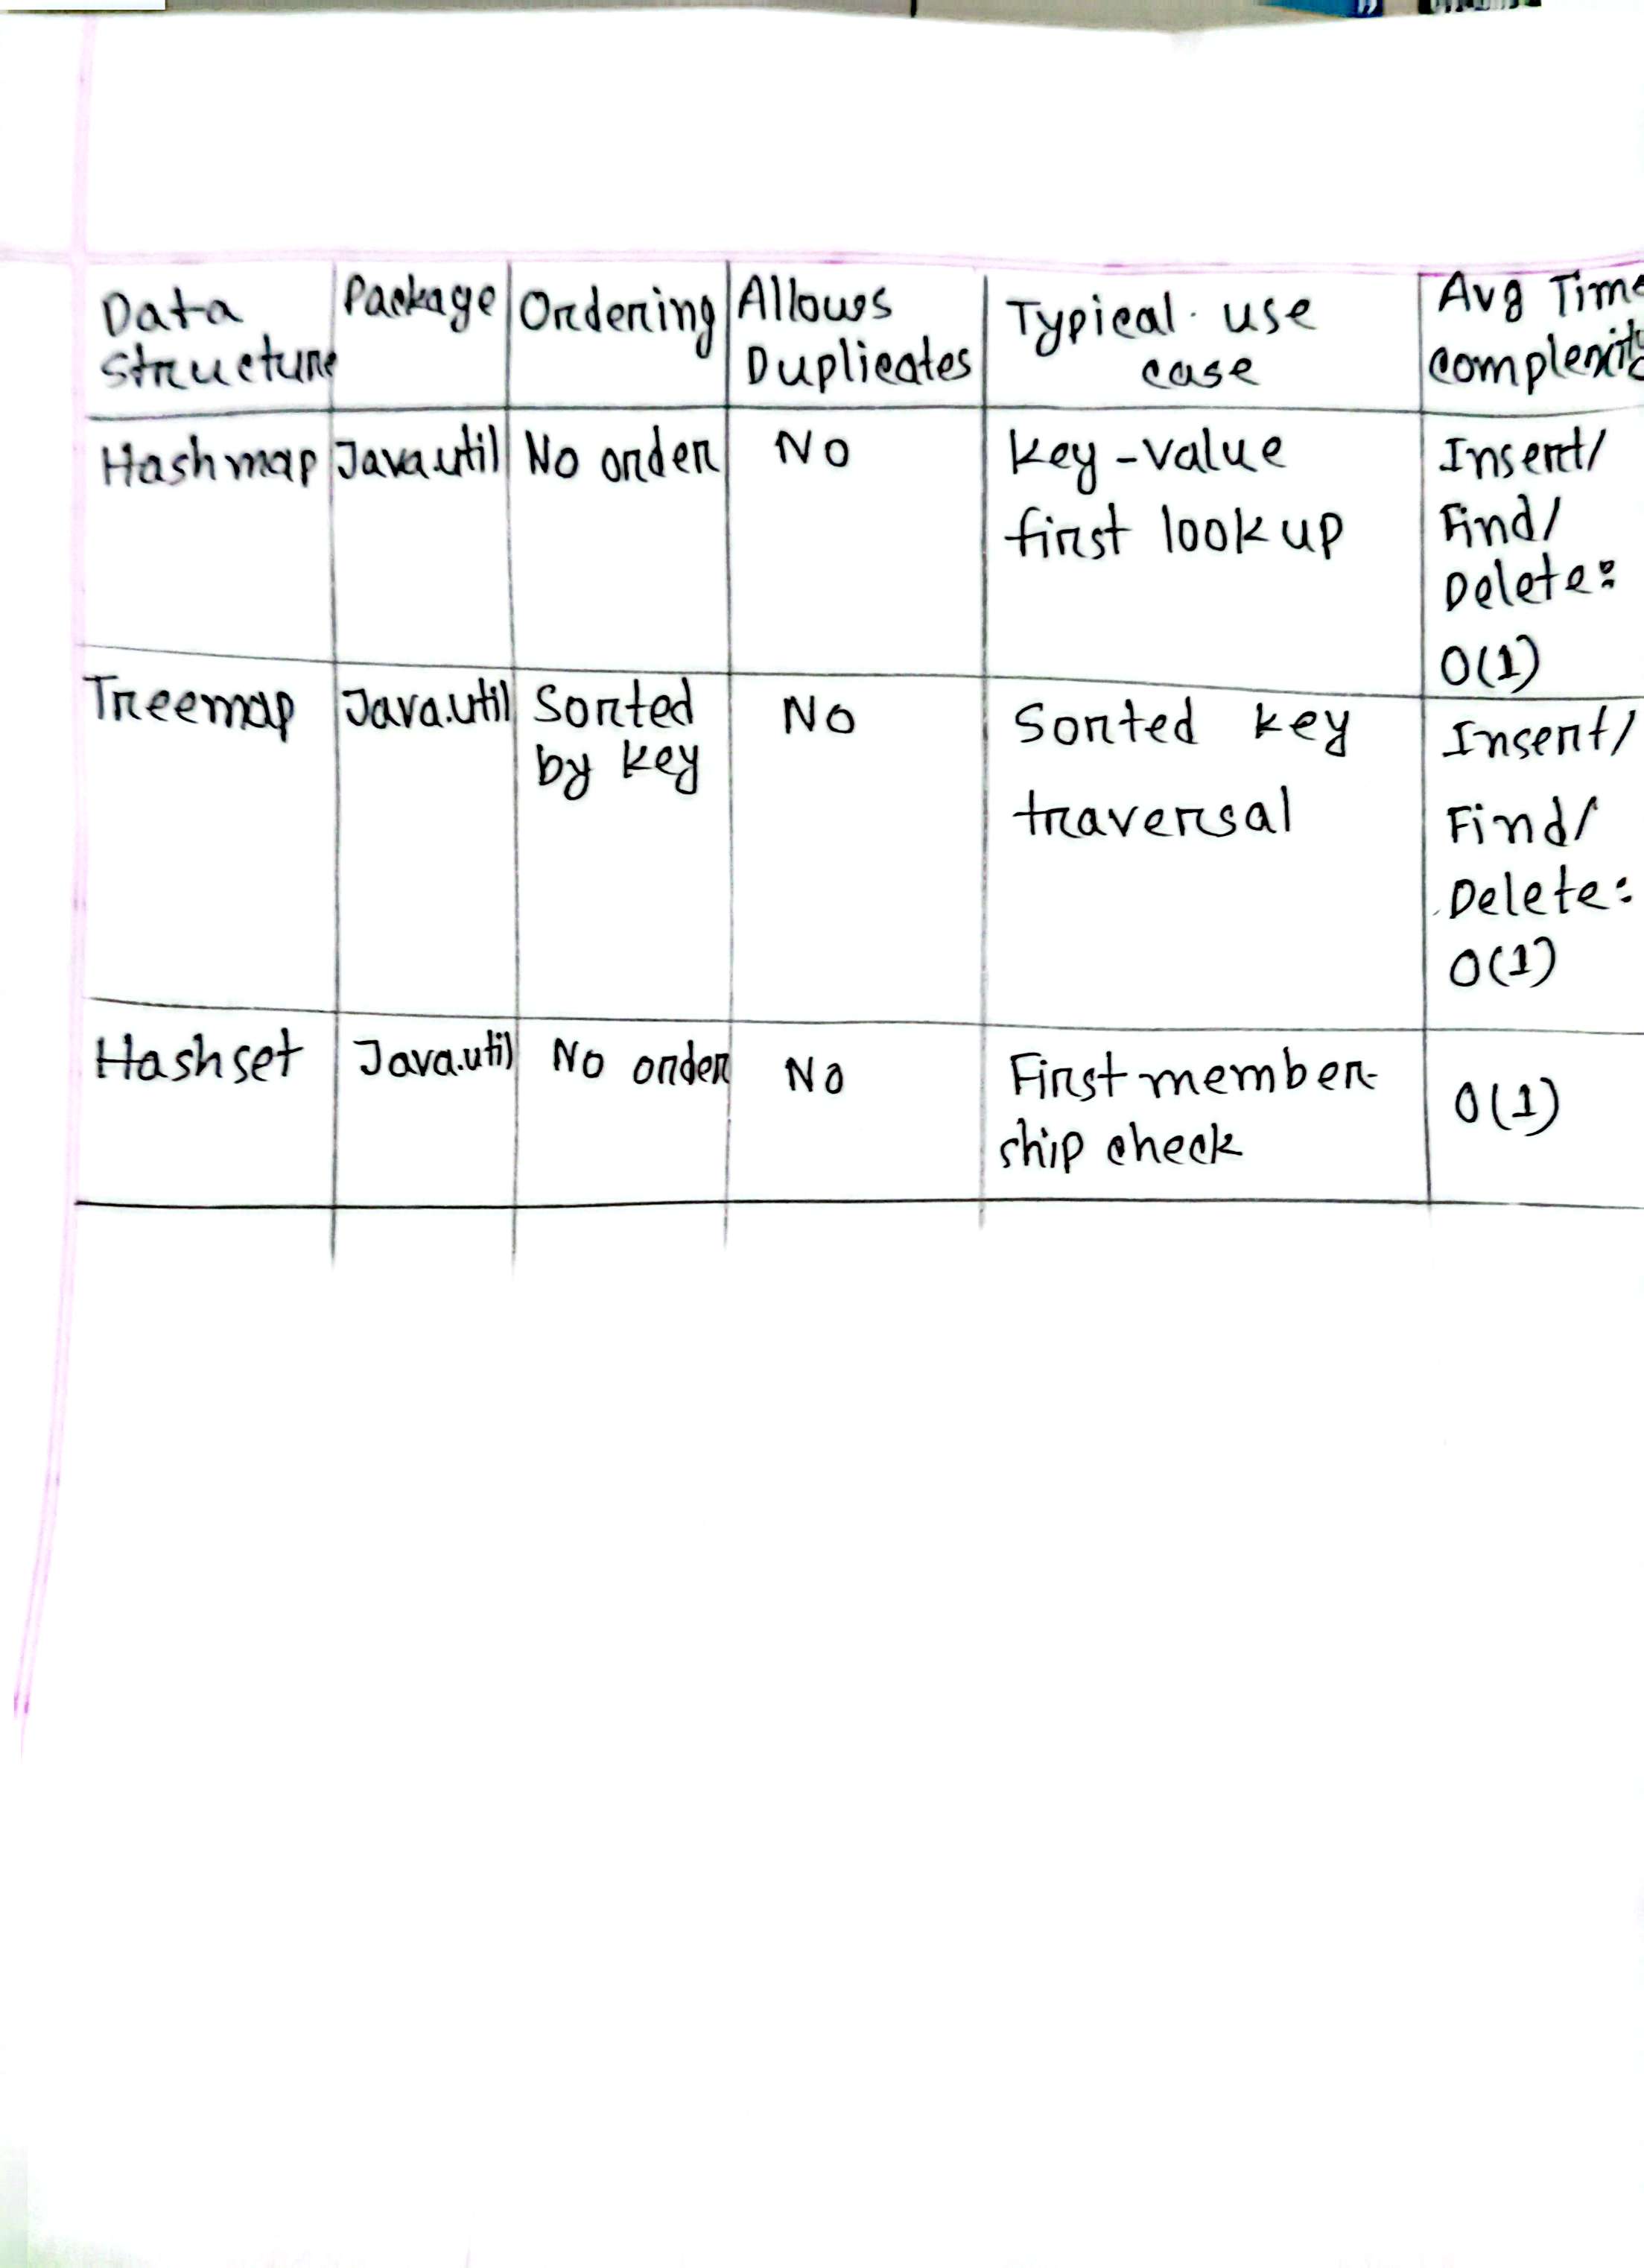 Data Structure | Package | Ordering | Allows Duplicates | Typical use case | Avg Time complexity
Hashmap | Java.util | No order | No | Key-value first lookup | Insert/ Find/ Delete: O(1)
Treemap | Java.util | Sorted by key | No | Sorted key traversal | Insert/ Find/ Delete: O(1)
Hashset | Java.util | No order | No | First member-ship check | O(1)